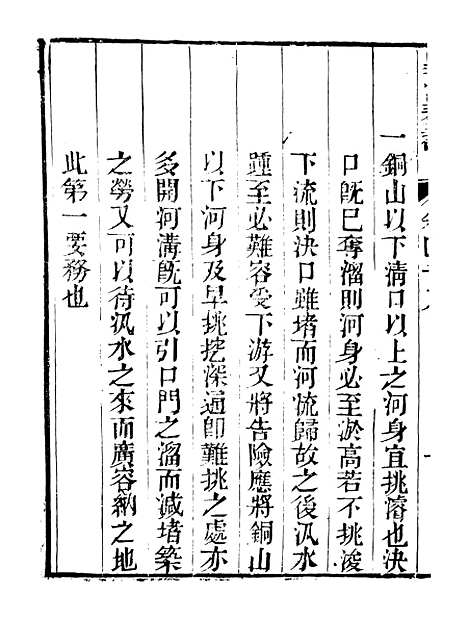 一銅山以下清口以上之河身宜挑濬也決
口旣已奪溜則河身必至淤高若不挑浚
下流則決口雖堵而河流歸故之後汛水
踵至必難容受下游又將告險應將銅山
以下河身及早挑挖深通卽難挑之處亦
多開河溝旣可以引口門之溜而減堵築
之勞又可以待汛水之來而廣容納之地
此第一要務也